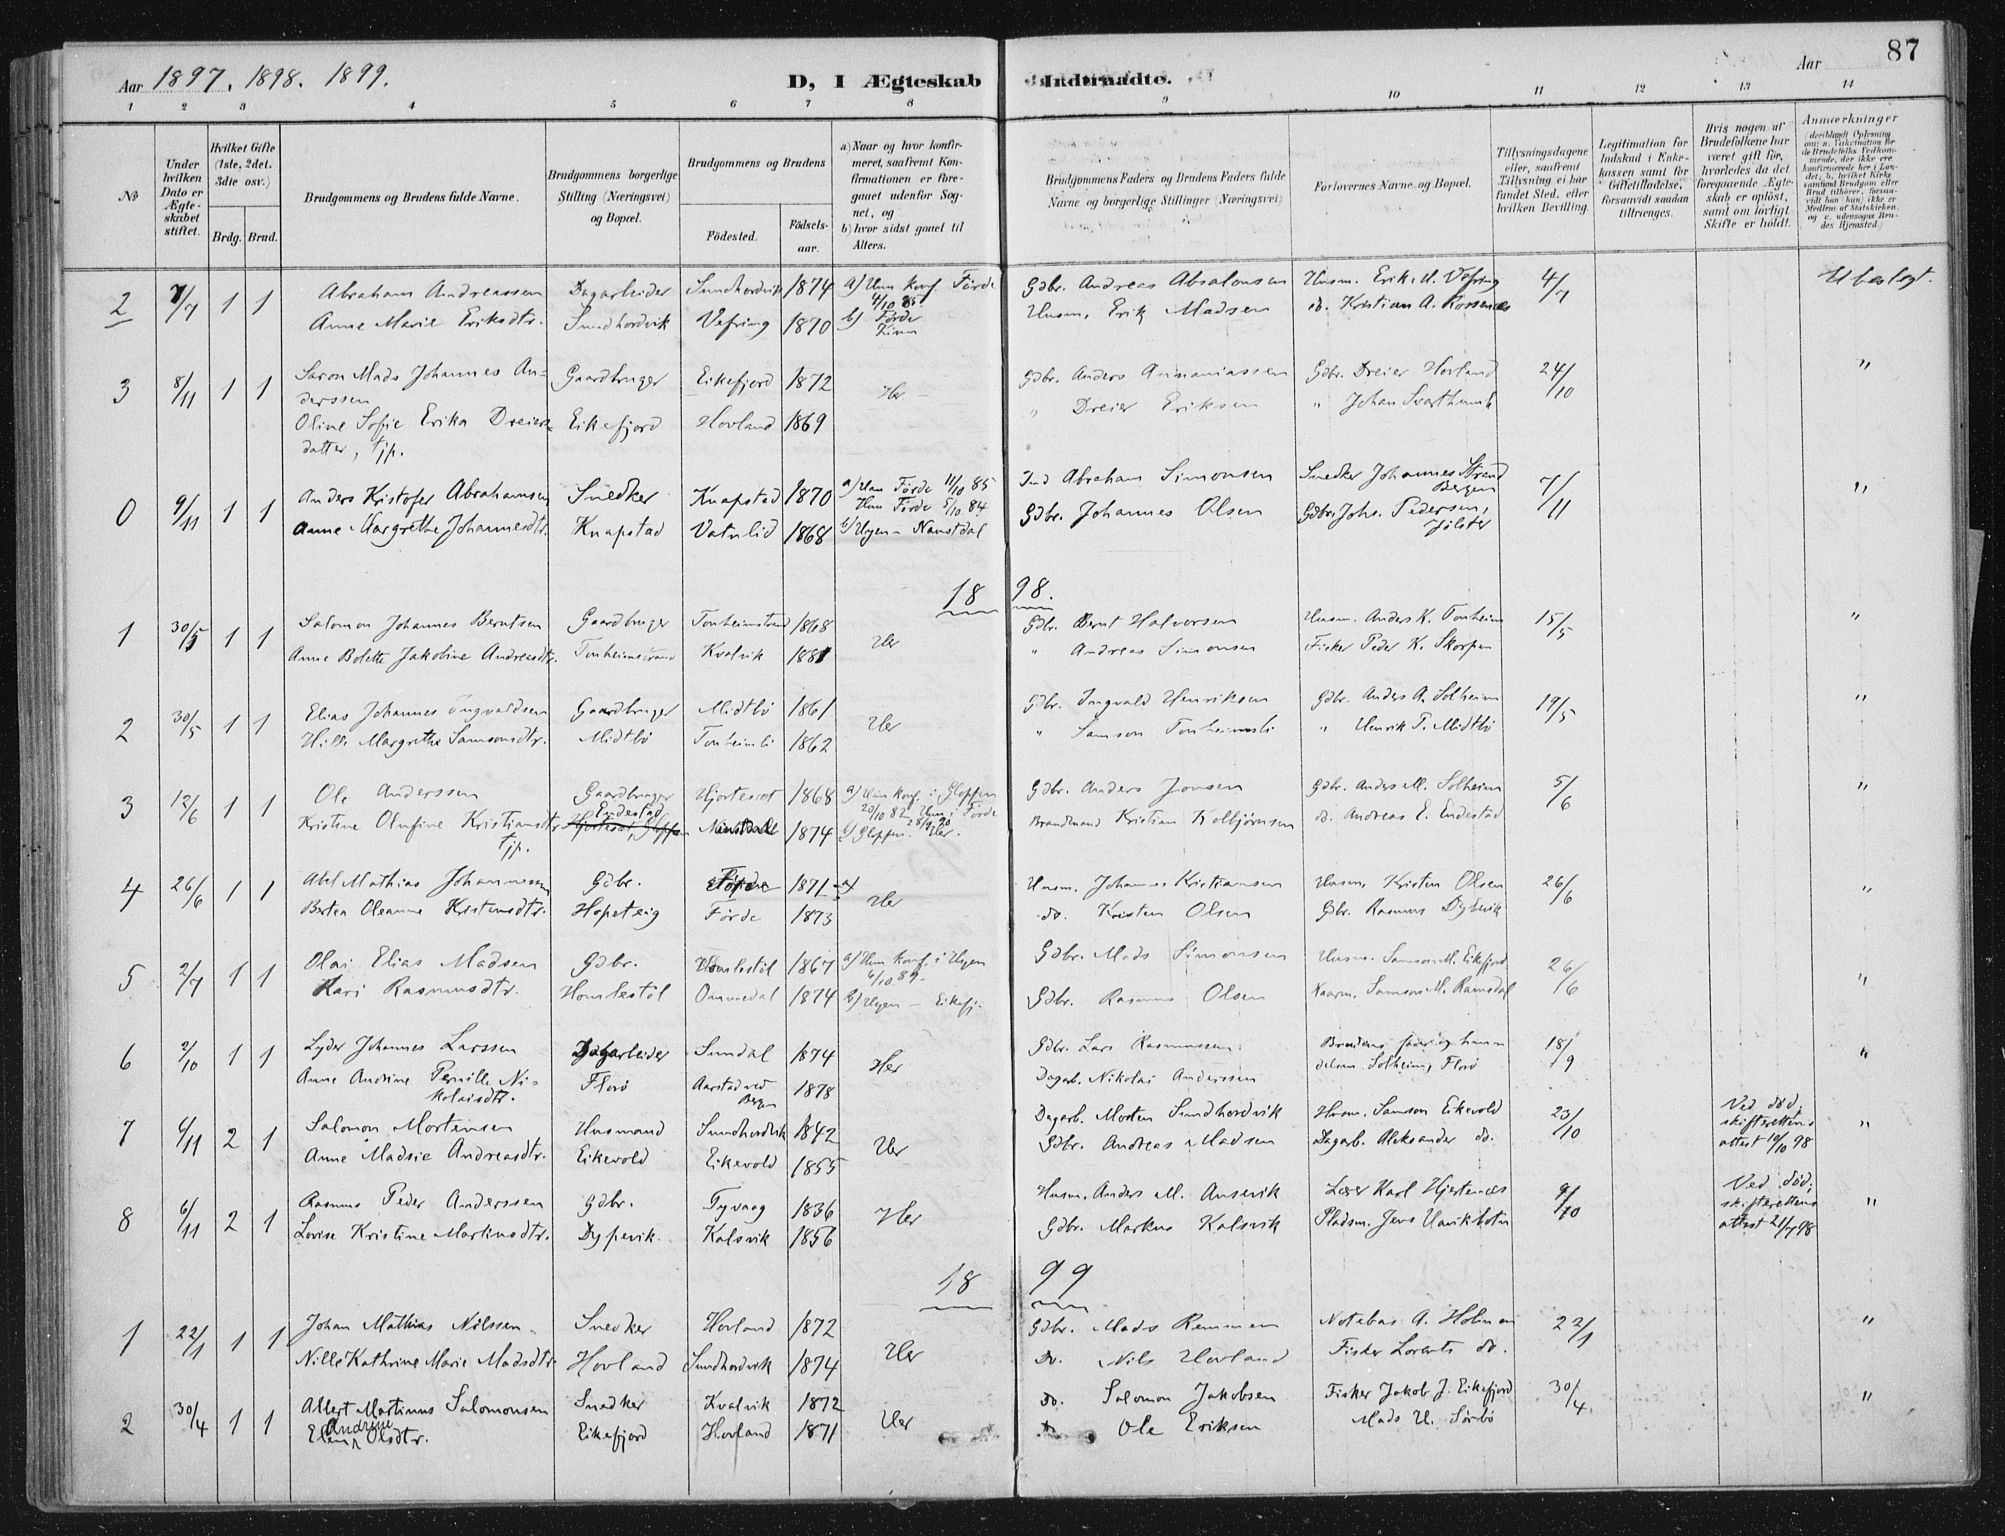 Aar 1897. 1898. 1899.
D, I Ægteskab Indtraadte.
Aar
87
1 2 3 4 5 6 7 8 9 10 11 12 13 14
No
Under hvilken Dato er Ægteskabet stiftet.
Hvilket Gifte (1ste, 2det, 3die osv.)
Brdg. Brud.
Brudgommens og Brudens fulde Navne.
Brudgommens borgerlige Stilling (Næringsvei) og Bopæl.
Brudgommens og Brudens
Fødested.
Fødselsaar.
a) Naar og hvor konfirmeret, saafremt Konfirmationen er foregaaet udenfor Sognet, og
b) hvor sidst gaaet til Alters.
Brudgommens Faders og Brudens Faders fulde Navne og borgerlige Stillinger (Næringsvei)
Forlovernes Navne og Bopæl.
Tillysningsdagene eller, saafremt Tillysning ei har fundet Sted, efter hvilken Bevilling.
Legitimation for Indskud i Enkekassen samt for Giftetilladelse, forsaavidt saadan tiltrænges.
Hvis nogen af Brudefolkene har været gift før, hvorledes da det foregaaende Ægteskab er opløst, samt om lovligt Skifte er holdt.
Anmærkninger
2 7/7 1 1 Abraham Andreassen Dagarbeider Sundhordvik 1874 a) Hun konf. Førde Gdbr. Andreas Absalonsen Husm. Erik M. Vefring 4/7 Ubeslegt.
4/10 85
Anne Marie Eriksdtr. Sundhordvik Vefring 1870 b) Førde Husm. Erik Madsen do. Kristian A.
Kinn
3 8/11 1 1 Mads Johannes An- Gaardbruger Eikefjord 1872 Her Gdbr. Anders Ananiassen Gdbr. Dreier Hovland 24/10 "
derssen
Oline Sofie Erika Dreiers- Eikefjord Hovland 1869 " Dreier Eriksen " Johan
datter, tjp.
0 9/11 1 1 Anders Kristofer Abrahamsen Snedker Knapstad 1870 a) Han Førde 11/10 85 Ind Abraham Simonsen Snedker Johannes Strand 7/11 "
Hun Førde 5/10 84 Bergen
Anne Margrethe Johannesdtr. Knapstad Vatnlid 1868 b) Hyen - Naustdal Gdbr. Johannes Olsen Gdbr. Johs. Pedersen,
Jølster
1898.
1 30/5 1 1 Salomon Johannes Berntsen Gaardbruger Tonheimstrand 1868 Her Gdbr. Bernt Halvorsen Husm. Anders K. Tonheim 15/5 "
Anne Bolette Jakobine Andreasdtr. Tonheimstrand Kvalvik 1881 " Andreas Simonsen Fisker Peder K. Skorpen
2 30/5 1 1 Elias Johannes Ingvaldsen Gaardbruger Midtbö 1861 Her Gdbr. Ingvald Henriksen Gdbr. Anders A. Solheim 19/5 "
Margrethe Samsonsdtr. Midtbö Tonheimli 1862 " Samson Tonheimsli " Henrik T. Midtbö
3 12/6 1 1 Ole Anderssen Gaardbruger 1868 a) Han konf. i Gloppen Gdbr. Anders Jonsen Gdbr. Anders M. Solheim 5/6 "
Endestad 20/10 82 Hun i Førde
28/9 90
Kristine Olufine Kristiansdtr. Naustdal 1874 b) Gloppen - Her. Brandmand Kristian Kolbjørnsen do. Andreas E. Endestad
tjp.
4 26/6 1 1 Abel Mathias Johannessen Gdbr. Førde 1871 Her Husm. Johannes Kristiansen Husm. Kristen Olsen 26/6 "
Bertea Oleanne Kristensdtr. Hopeteig Førde 1873 do. Kristen Olsen Gdbr. Rasmus Dybevik
5 2/7 1 1 Olai Elias Madsen Gdbr. Homlestöl 1867 a) Hun konf. i Hyen Gdbr. Mads Simonsen Husm. Samson M. Eikefjord 26/6 "
6/10 89.
Kari Rasmusdtr. Homlestöl Ommedal 1874 b) Hyen - Eikefj. Gdbr. Rasmus Olsen Kaarm. Samson M. Ramsdal
6 2/10 1 1 Lyder Johannes Larssen Dagarbeider Sundal 1874 Her Gdbr. Lars Rasmussen. Brudens fader og han- 18/9 "
Anne Andrine Pernille Ni- Florö Aarstad ved 1878 Dagarb. Nikolai Anderssen delsm. Solheim, Florö
kolaisdtr. Bergen
7 6/11 2 1 Salomon Mortensen Husmand Sundhordvik 1842 Her Dagarb. Morten Sundhordvik Husm. Samson Eikevold 23/10 Ved död, skifterettens attest 10/10 98 "
Anne Madsie Andreasdtr. Eikevold Eikevold 1855 Gdbr. Andreas Madsen Dagarb. Aleksander do.
8 6/11 2 1 Rasmus Peder Anderssen Gdbr. Tyvaag 1836 Her Husm. Anders M. Ansevik Lærer Karl Hjertenæs 9/10 Ved död, skifterettens attest 21/7 98 "
Lovise Kristine Markusdtr. Dypevik. Kalsvik 1856 Gdbr. Markus Kalsvik Pladsm. Jens
1899
1 22/1 1 1 Johan Mathias Nilssen. Snedker Hovland 1872 Her Gdbr. Mads Remmen Notebas A. Holmen 22/1 "
Nille Kathrine Marie Madsdtr. Hovland Sundhordvik 1874 Do. Nils Hovland Fisker Lorents do.
2 30/4 1 1 Albert Martinus Salomonsen Snedker Kvalvik 1872 Her do. Salomon Jakobsen Fisker Jakob J. Eikefjord 30/4 "
Andrine
Elen Olsdtr. Eikefjord Hovland 1871 do Ole Eriksen Mads H. Sörbö